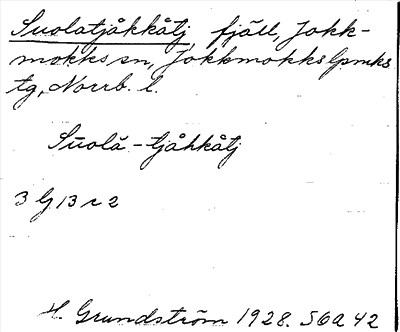 Suolatjåkkåtj, fjäll, Jokk-
mokks sn, Jokkmokks lpmks
tg, Norrb. l.
Suolā - tjåhkåtj
3 G 13 r 2
H. Grundström 1928. S6a 42